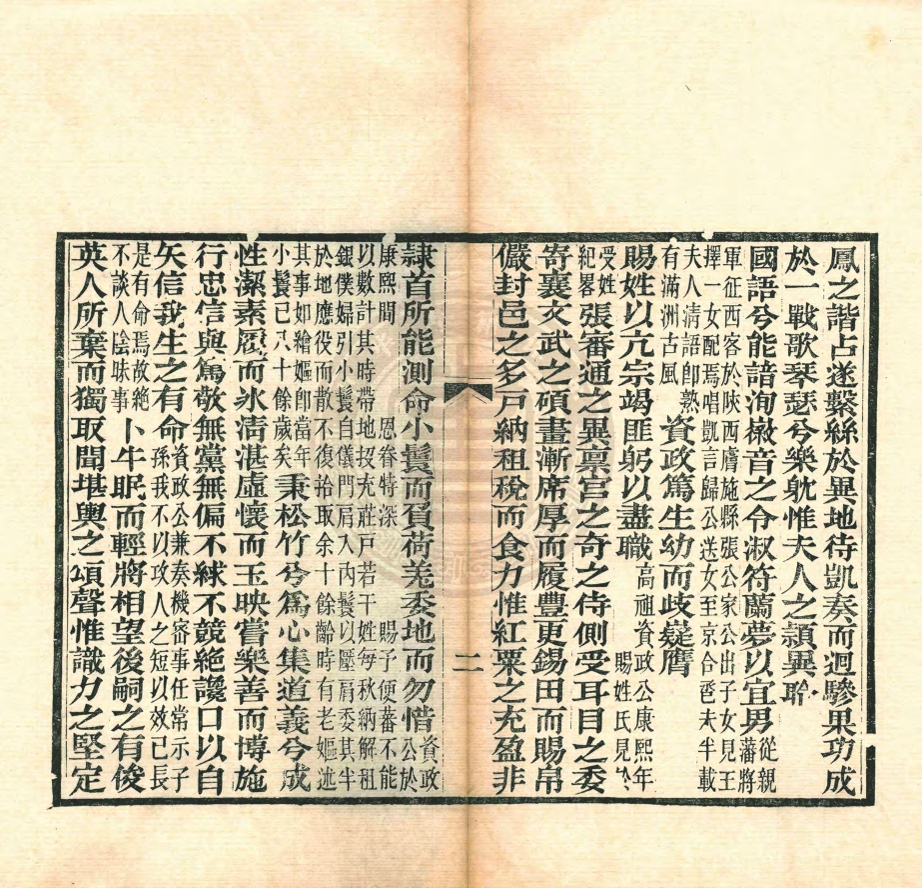 鳳之諧占遂繫絲於異地待凱奏而迴驂果功成
於一戰歌琴瑟兮樂躭惟夫人之頴異聆
國語兮能諳洵橄音之令淑符蘭夢以宜男
從親
藩將
軍征西客於陝西膚施縣張公家公出子女見王
擇一女配焉唱凱言歸公送女至京合巹未半載
夫人清語即熟
有滿洲古風
資政篤生幼而歧嶷膺
賜姓以亢宗竭匪躬以盡職
高祖資政公康熙年
賜姓氏見
受姓
紀畧
張審通之異稟宮之奇之侍側受耳目之委
寄襄文武之碩畫漸席厚而履豐更錫田而賜帛
儼封邑之多戸納租稅而食力惟紅粟之充盈非
二
隷首所能測命小鬟而負荷羌委地而勿惜
資政
公於
康熙間 恩眷特深 賜予便蕃不能
以數計其時帶地投充莊戸若干姓每秋納解租
銀僕婦引小鬟自儀門肩入內鬟以屬肩委其半
於地應役而散不復拾取余十餘齡時有老嫗述
其事如繪嫗即當年
小鬟已八十餘歲矣
秉松竹兮爲心集道義兮成
性潔素履而氷清湛虛懷而玉映嘗樂善而博施
行忠信與篤敬無黨無偏不絿不競絶讒口以自
矢信我生之有命
資政公兼奏機審事任常示子
孫我不以攻人之短以效己長
是有命焉故絶
不談人陰昧事
卜牛眠而輕將相望後嗣之有俊
英人所棄而獨取聞堪輿之頌聲惟識力之堅定